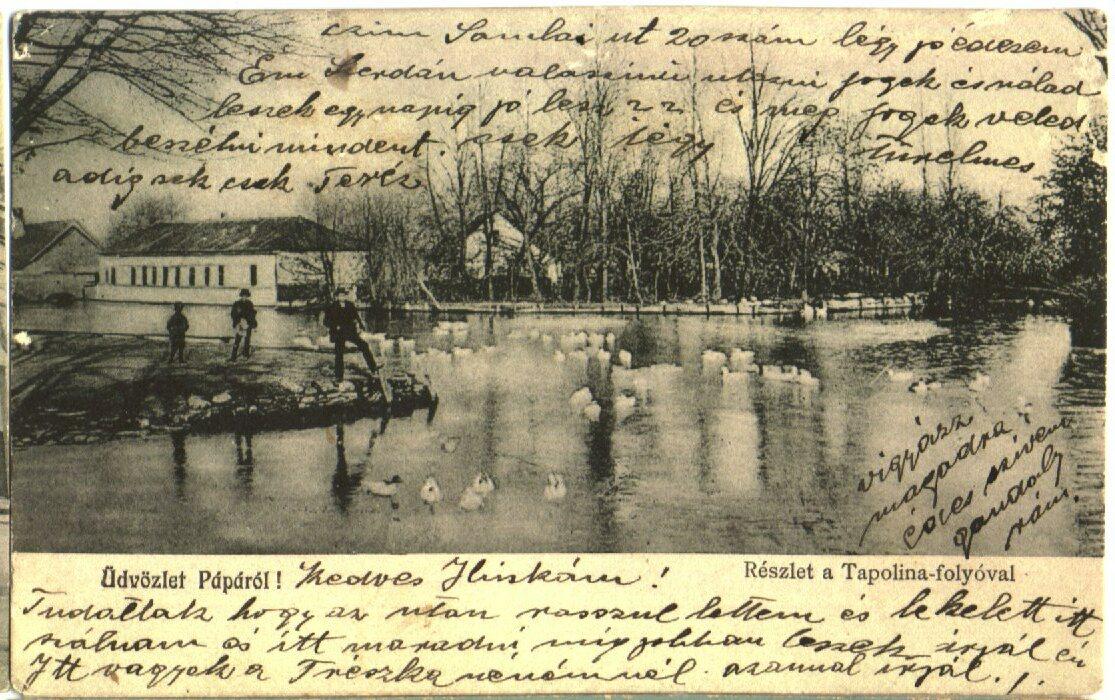 czim Somlai ut 20 szám légy jó édesem
Én Szerdán valoszinü utazni fogok és nálad
leszek egy napig jó lesz és meg fogok veled
beszélni mindent. csek légy türelmes
adig sek csek Teréz
vigyász
magadra
édes szivem
gondolj
rám.
Üdvözlet Pápáról !
Kedves Ilinkám !
Részlet a Tapolina-folyóval
Tudattak hogy az utan rosszul lettem és le kelett itt
szálnam és itt maradni, míg jobban leszek irjál én
Itt vagyok a Treszka nénémnél. azonnal irjál.